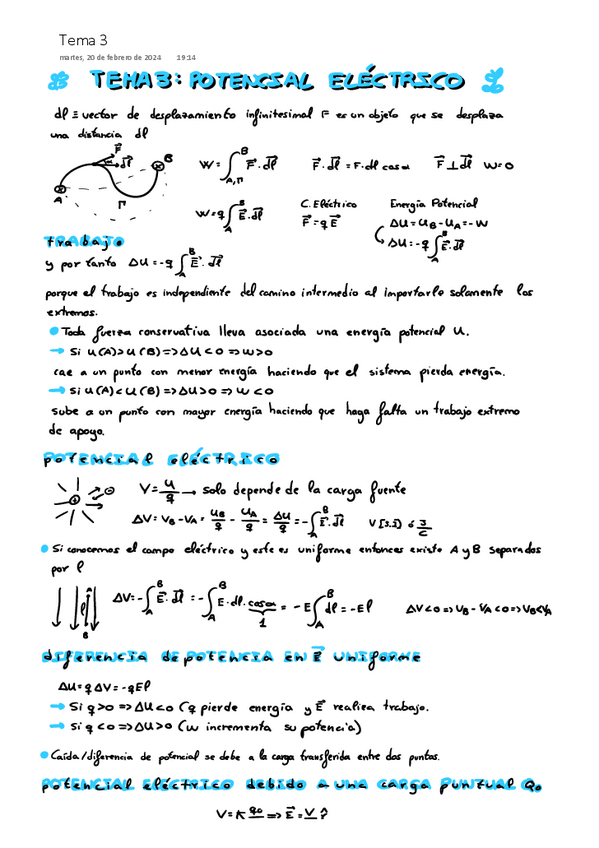 Tema 3
martes, 20 de febrero de 2024 19:14
TEMA 3: POTENCIAL ELÉCTRICO
dl ≡ vector de desplazamiento infinitesimal F es un objeto que se desplaza
una distancia dl
F⃗ dl⃗ B
A Γ
W = ∫_{A,Γ}^{B} F⃗·dl⃗ F⃗·dl⃗ = F·dl cosα F⃗⊥dl⃗ W=0
C. Eléctrico Energía Potencial
W = q∫_A^B E⃗·dl⃗ F⃗ = qE⃗ ΔU = U_B - U_A = -W
ΔU = -q∫_A^B E⃗·dl⃗
trabajo
y por tanto ΔU = -q∫_A^B E⃗·dl⃗
porque el trabajo es independiente del camino intermedio al importarle solamente los
extremos.
Toda fuerza conservativa lleva asociada una energía potencial U.
→ Si U(A)>U(B) => ΔU<0 => W>0
cae a un punto con menor energía haciendo que el sistema pierda energía.
→ Si U(A)<U(B) => ΔU>0 => W<0
sube a un punto con mayor energía haciendo que haga falta un trabajo extremo
de apoyo.
potencial eléctrico
V = U/q → solo depende de la carga fuente
ΔV = V_B - V_A = U_B/q - U_A/q = ΔU/q = -∫_A^B E⃗·dl⃗ V [S.I] ó J/C
Si conocemos el campo eléctrico y este es uniforme entonces existe A y B separados
por l
ΔV = -∫_A^B E⃗·dl⃗ = -∫_A^B E·dl·cosα = -E∫_A^B dl = -El ΔV<0 => V_B - V_A<0 => V_B<V_A
1
B
diferencia de potencia en E⃗ uniforme
ΔU = qΔV = -qEl
→ Si q>0 => ΔU<0 (q pierde energía y E⃗ realiza trabajo.
→ Si q<0 => ΔU>0 (W incrementa su potencia)
Caída/diferencia de potencial se debe a la carga transferida entre dos puntos.
potencial eléctrico debido a una carga puntual Q₀